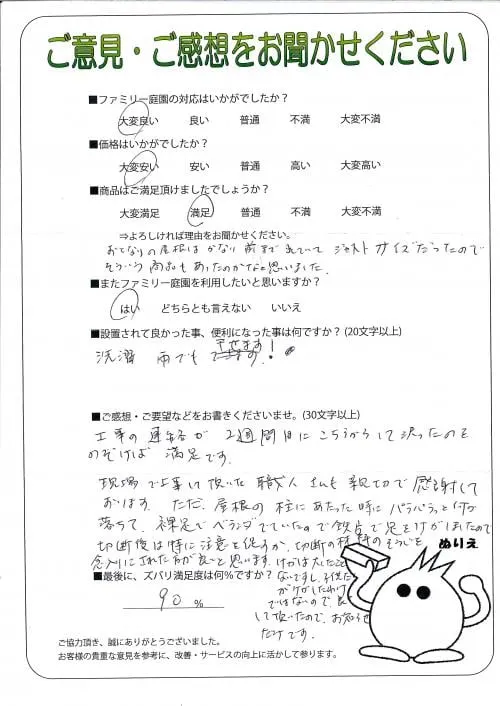 ご意見・ご感想をお聞かせください
■ファミリー庭園の対応はいかがでしたか？
大変良い 良い 普通 不満 大変不満
■価格はいかがでしたか？
大変安い 安い 普通 高い 大変高い
■商品はご満足頂けましたでしょうか？
大変満足 満足 普通 不満 大変不満
⇒よろしければ理由をお聞かせください。
おとなりの屋根はかなり前まで出ていて ジャストサイズだったので
そういう商品もあったのかなと思いました。
■またファミリー庭園を利用したいと思いますか？
はい どちらとも言えない いいえ
■設置されて良かった事、便利になった事は何ですか？ (20文字以上)
洗濯 雨でも 干せます！
■ご感想・ご要望などをお書きくださいませ。(30文字以上)
工事の連絡が 2週間目にこちらからして決ったのを
のぞけば 満足です。
現場で工事して頂いた 職人さんも親切で 感謝して
おります。ただ、屋根の柱にあたった時にパラパラっと
落ちて、裸足でベランダでていたので鉄片で足をけがしたので
切断後は特に注意を促すか、切断の材料のそうじを
念入りにされた方が良いと思います。けがは大したこと
ないですし、子供たち
がケガしたわけ
ではないので、
して頂いたので、お知らせ
だけです。
ぬりえ
■最後に、ズバリ満足度は何％ですか？
90 %
ご協力頂き、誠にありがとうございました。
お客様の貴重な意見を参考に、改善・サービスの向上に活かして参ります。